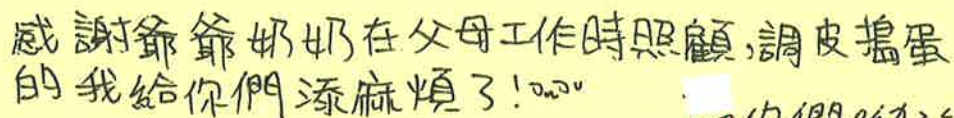 感謝爺爺奶奶在父母工作時照顧,調皮搗蛋
的我給你們添麻煩了!